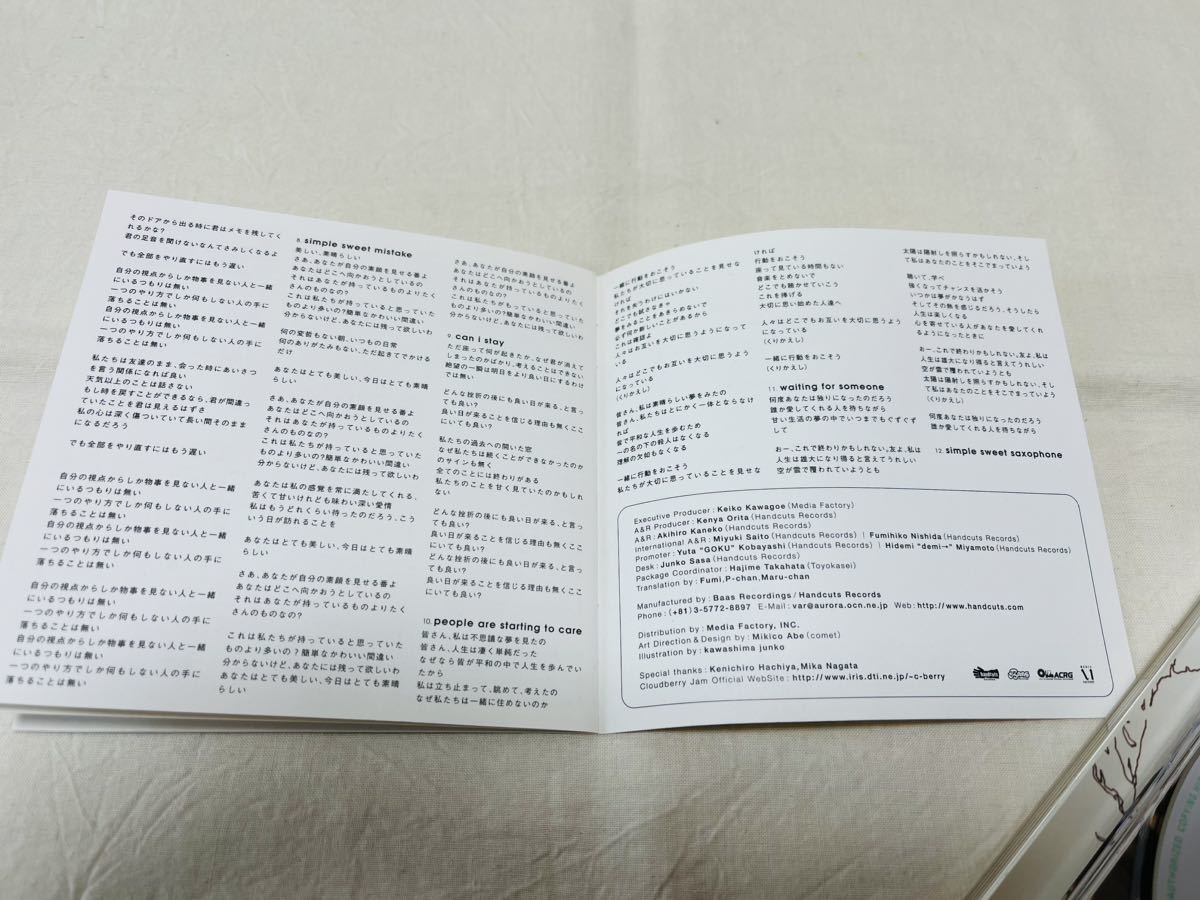 そのドアから出る時に君はメモを残してく
れるかな?
君の足音を聞けないなんてさみしくなるよ
でも全部をやり直すにはもう遅い
自分の視点からしか物事を見ない人と一緒
にいるつもりは無い
一つのやり方でしか何もしない人の手に
落ちることは無い
自分の視点からしか物事を見ない人と一緒
にいるつもりは無い
一つのやり方でしか何もしない人の手に
落ちることは無い
私たちは友達のまま、会った時にあいさつ
を言う関係になれば良い
天気以上のことは話さない
もし時を戻すことができるなら、君が間違っ
ていたことを君は見えるはずさ
私の心は深く傷ついていて長い間そのまま
になるだろう
でも全部をやり直すにはもう遅い
自分の視点からしか物事を見ない人と一緒
にいるつもりは無い
一つのやり方でしか何もしない人の手に
落ちることは無い
自分の視点からしか物事を見ない人と一緒
にいるつもりは無い
一つのやり方でしか何もしない人の手に
落ちることは無い
自分の視点からしか物事を見ない人と一緒
にいるつもりは無い
一つのやり方でしか何もしない人の手に
落ちることは無い
自分の視点からしか物事を見ない人と一緒
にいるつもりは無い
一つのやり方でしか何もしない人の手に
落ちることは無い
8. simple sweet mistake
美しい、素晴らしい
さあ、あなたが自分の素顔を見せる番よ
あなたはどこへ向かおうとしているの
それはあなたが持っているものよりたく
さんのものなの?
これは私たちが持っていると思っていた
ものより多いの?簡単なかわいい間違い
分からないけど、あなたには残って欲しいわ
何の変哲もない朝、いつもの日常
何のありがたみもない、ただ起きてでかける
だけ
あなたはとても美しい、今日はとても素晴
らしい
さあ、あなたが自分の素顔を見せる番よ
あなたはどこへ向かおうとしているの
それはあなたが持っているものよりたく
さんのものなの?
これは私たちが持っていると思っていた
ものより多いの?簡単なかわいい間違い
分からないけど、あなたには残って欲しいわ
あなたは私の感覚を常に満たしてくれる、
苦くて甘いけれども味わい深い愛情
私はもうどれくらい待ったのだろう、こう
いう日が訪れることを
あなたはとても美しい、今日はとても素晴
らしい
さあ、あなたが自分の素顔を見せる番よ
あなたはどこへ向かおうとしているの
それはあなたが持っているものよりたく
さんのものなの?
これは私たちが持っていると思っていた
ものより多いの?簡単なかわいい間違い
分からないけど、あなたには残って欲しいわ
あなたはとても美しい、今日はとても素晴
らしい
さあ、あなたが自分の素顔を見せる番よ
あなたはどこへ向かおうとしているの
それはあなたが持っているものよりたく
さんのものなの?
これは私たちがもっていると思っていた
ものより多いの?簡単なかわいい間違い
分からないけど、あなたには残って欲しいわ
9. can i stay
ただ座って何が起きたか、なぜ君が消えて
しまったのかばかり、考えることはできない
絶望の一瞬は明日をより良い日にするわけ
では無い
どんな挫折の後にも良い日が来る、と言っ
ても良い?
良い日が来ることを信じる理由も無くここ
にいても良い?
私たちの過去への開いた窓
なぜ私たちは続くことができなかったのか
のサインも無く
全てのことには終わりがある
私たちのことを甘く見ていたのかもしれ
ない
どんな挫折の後にも良い日が来る、と言っ
ても良い?
良い日が来ることを信じる理由も無くここ
にいても良い?
どんな挫折の後にも良い日が来る、と言っ
ても良い?
良い日が来ることを信じる理由も無くここ
にいても良い?
10. people are starting to care
皆さん、私は不思議な夢を見たの
皆さん、人生は凄く単純だった
なぜなら皆が平和の中で人生を歩んでい
たから
私は立ち止まって、眺めて、考えたの
なぜ私たちは一緒に住めないのか
一緒に行動をおこそう
私たちが大切に思っていることを見せな
ければ
それを失うわけにはいかない
どこでも試さなきゃ
夢をみることをあきらめないで
必ず何か新しいことがあるから
これは確認よ
人々はお互いを大切に思うようになって
いる
人々はどこでもお互いを大切に思うよう
になっている
(くりかえし)
皆さん、私は素晴らしい夢をみたの
皆さん、私たちはとにかく一体とならなけ
れば
皆で平和な人生を歩むため
一の名の下の殺人はなくなる
理解の欠如もなくなる
一緒に行動をおこそう
私たちが大切に思っていることを見せな
ければ
行動をおこそう
座って見ている時間もない
音楽をとめないで
どこでも聴かせていこう
これを捧げる
大切に思い始めた人達へ
人々はどこでもお互いを大切に思うように
なっている
(くりかえし)
一緒に行動をおこそう
(くりかえし)
11. waiting for someone
何度あなたは独りになったのだろう
誰か愛してくれる人を待ちながら
甘い生活の夢の中でいつまでもぐずぐず
して
おー、これで終わりかもしれない、友よ、私は
人生は雄大になり得ると言えてうれしい
空が雲で覆われていようとも
太陽は陽射しを照らすかもしれない、そし
て私はあなたのことをそこでまっていよう
聴いて、学べ
強くなってチャンスを活かそう
いつかは夢がかなうはず
そしてその熱を感じるだろう、そうしたら
人生は楽しくなる
心を寄せている人があなたを愛してくれ
るようになったときに
おー、これで終わりかもしれない、友よ、私は
人生は雄大になり得ると言えてうれしい
空が雲で覆われていようとも
太陽は陽射しを照らすかもしれない、そし
て私はあなたのことをそこでまっていよう
(くりかえし)
何度あなたは独りになったのだろう
誰か愛してくれる人を待ちながら
12. simple sweet saxophone
Executive Producer : Keiko Kawagoe (Media Factory)
A&R Producer : Kenya Orita (Handcuts Records)
A&R : Akihiro Kaneko (Handcuts Records)
International A&R : Miyuki Saito (Handcuts Records) | Fumihiko Nishida (Handcuts Records)
Promoter : Yuta "GOKU" Kobayashi (Handcuts Records) | Hidemi "demi→" Miyamoto (Handcuts Records)
Desk : Junko Sasa (Handcuts Records)
Package Coordinator : Hajime Takahata (Toyokasei)
Translation by : Fumi, P-chan, Maru-chan
Manufactured by : Baas Recordings / Handcuts Records
Phone : (+81) 3-5772-8897 E-Mail : var@aurora.ocn.ne.jp Web : http://www.handcuts.com
Distribution by : Media Factory, INC.
Art Direction & Design by : Mikico Abe (comet)
Illustration by : kawashima junko
Special thanks : Kenichiro Hachiya, Mika Nagata
Cloudberry Jam Official WebSite : http://www.iris.dti.ne.jp/~c-berry
ACRG